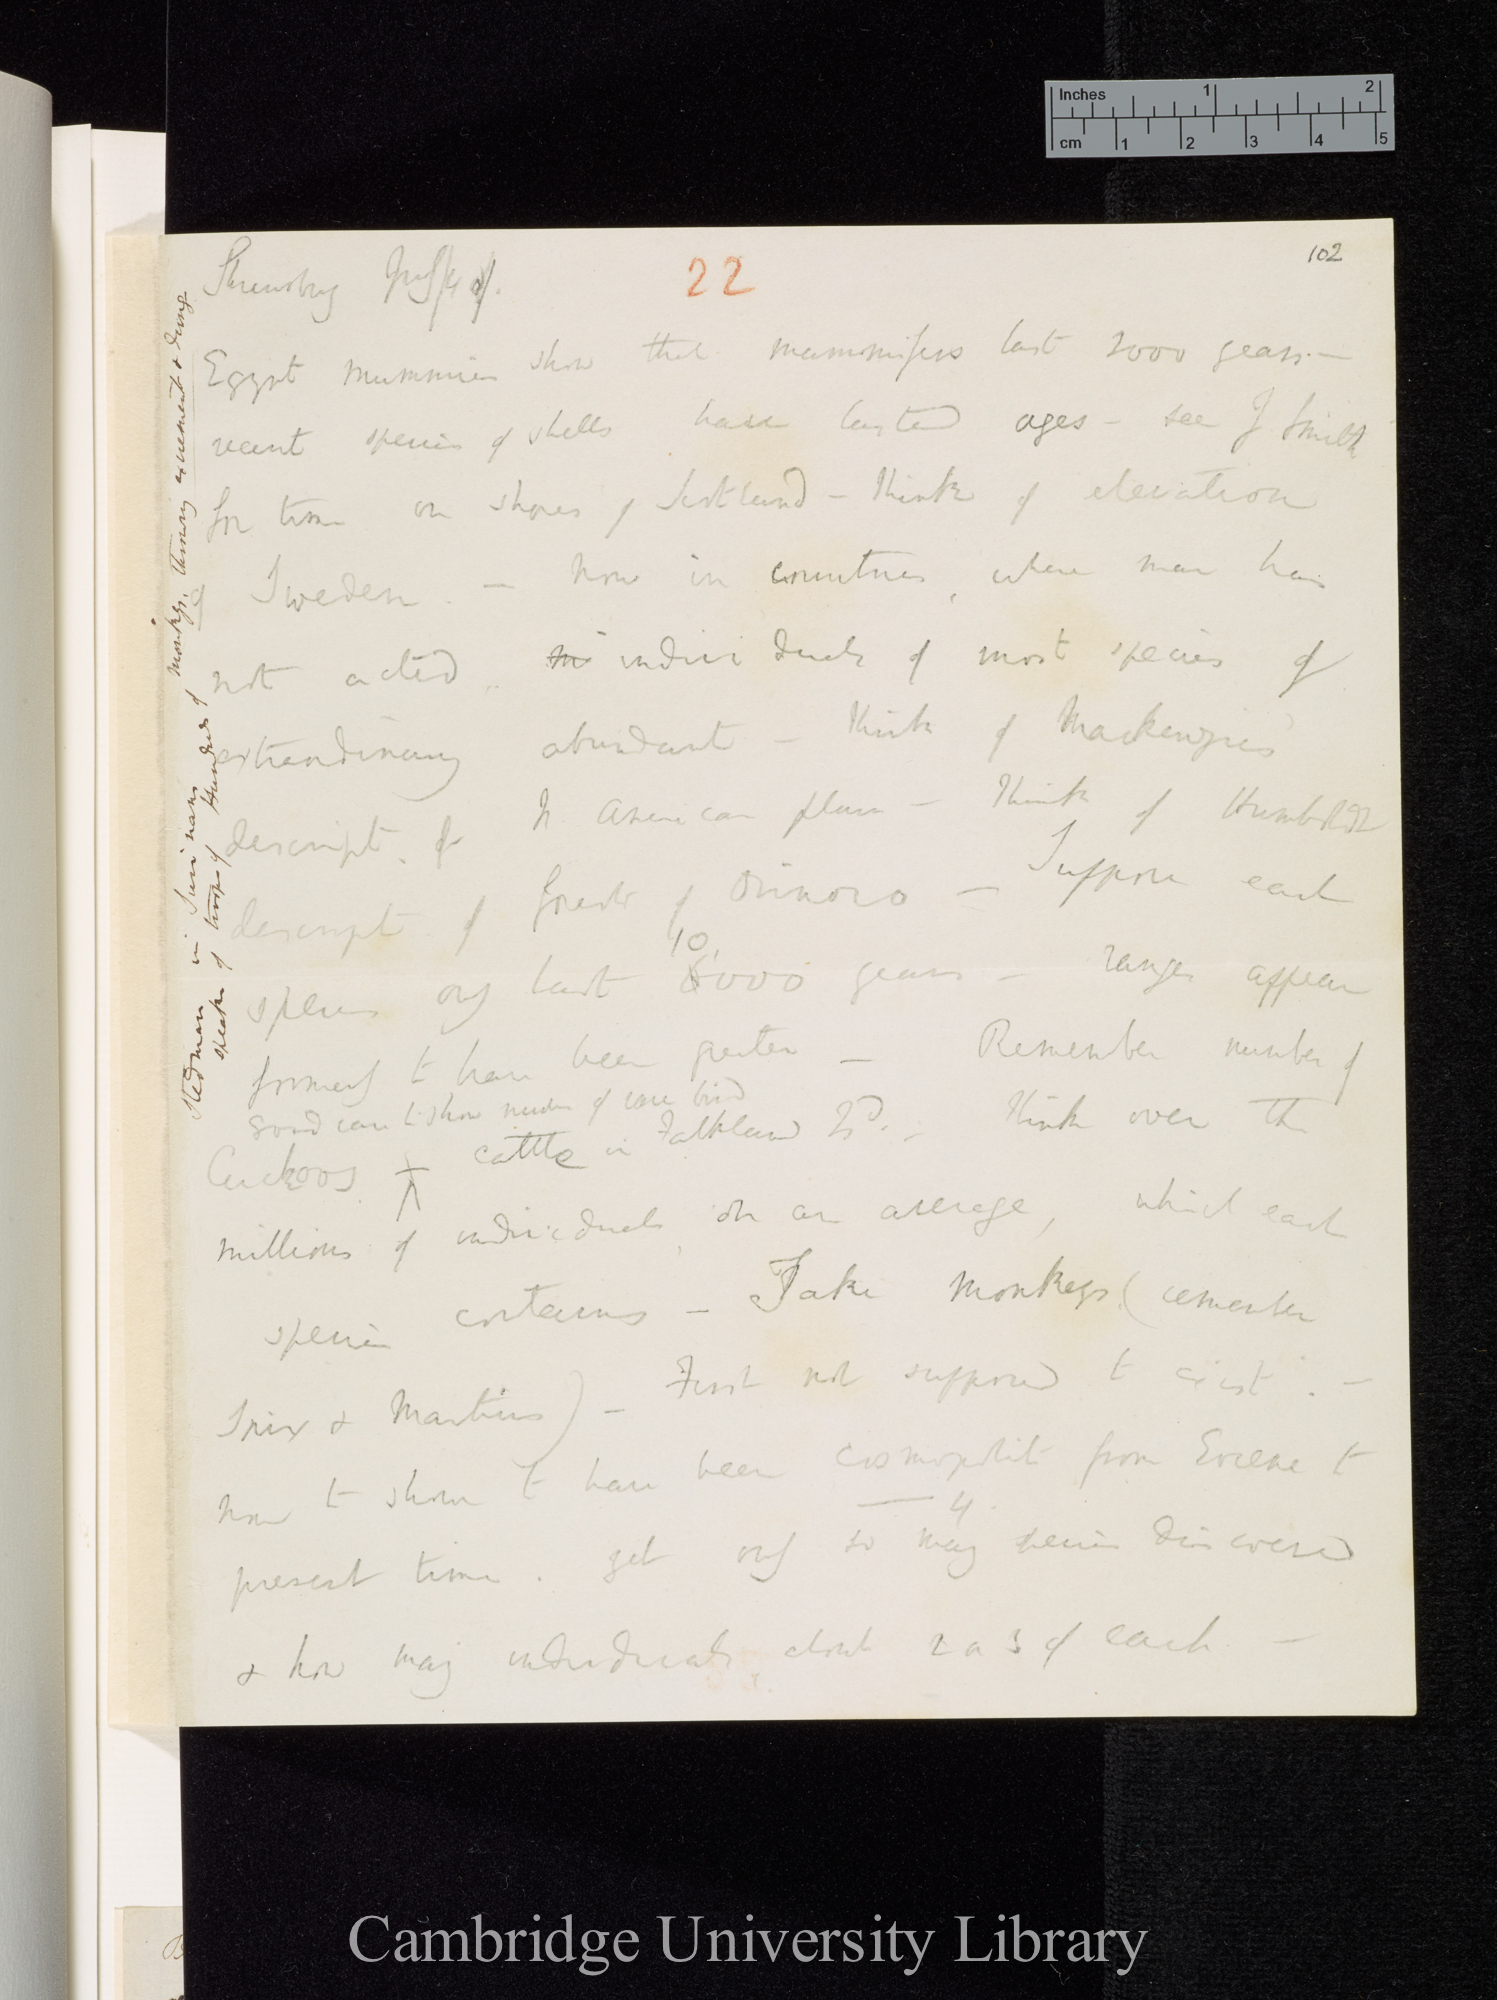 Inches 1 2
cm 1 2 3 4 5
102
22
Shrewsbury
Egypt mummies show that mammifers last 3000 years.—
recent species of shells have lasted ages — see J Smith
for time on shores of Scotland — think of elevation
Sweden. — Now in countries, where man has
not acted individuals of most species of
extraordinary abundant — think of Mackenzie's
descript. of N. American plain — think of Humboldt
descript. of forests of Orinoco — Suppose each
10,
species only last 000 years — ranges appear
formerly to have been greater — Remember number of
Good case to show number of rare bird
Cuckoos cattle in Falkland Isd. — think over the
millions of individuals, on an average, which each
species contains — Take monkeys (remember
Spix & Martius) — First not supposed to exist. —
now to show to have been cosmopolit from Eocene to
4
present time. yet only so many species discovered
& how many individuals about 2 or 3 of each —
Stedman in Surinam a monkey, throwing excrement & dung
speaks of troops of Hundreds of
Cambridge University Library